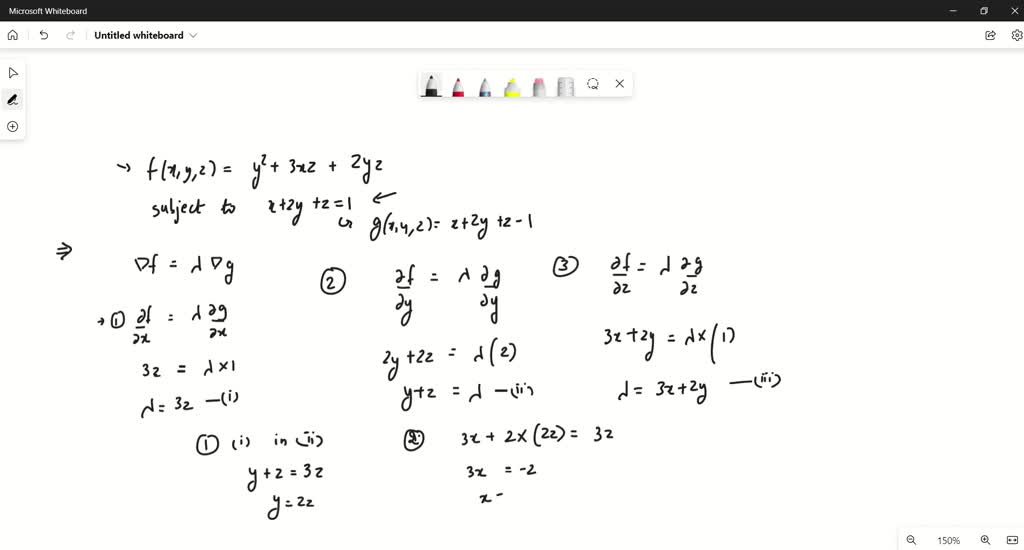 Microsoft Whiteboard
Untitled whiteboard
→ f(x,y,z) = y² + 3xz + 2yz
subject to x+2y+z=1 ←
↳ g(x,y,z) = x+2y+z-1
⇒
∇f = λ∇g
→ ① ∂f/∂x = λ ∂g/∂x
3z = λ×1
λ = 3z —(i)
② ∂f/∂y = λ ∂g/∂y
2y+2z = λ(2)
y+z = λ —(ii)
③ ∂f/∂z = λ ∂g/∂z
3x+2y = λ×(1)
λ = 3x+2y —(iii)
① (i) in (ii)
y+z = 3z
y = 2z
② 3x + 2×(2z) = 3z
3x = -z
x =
150%